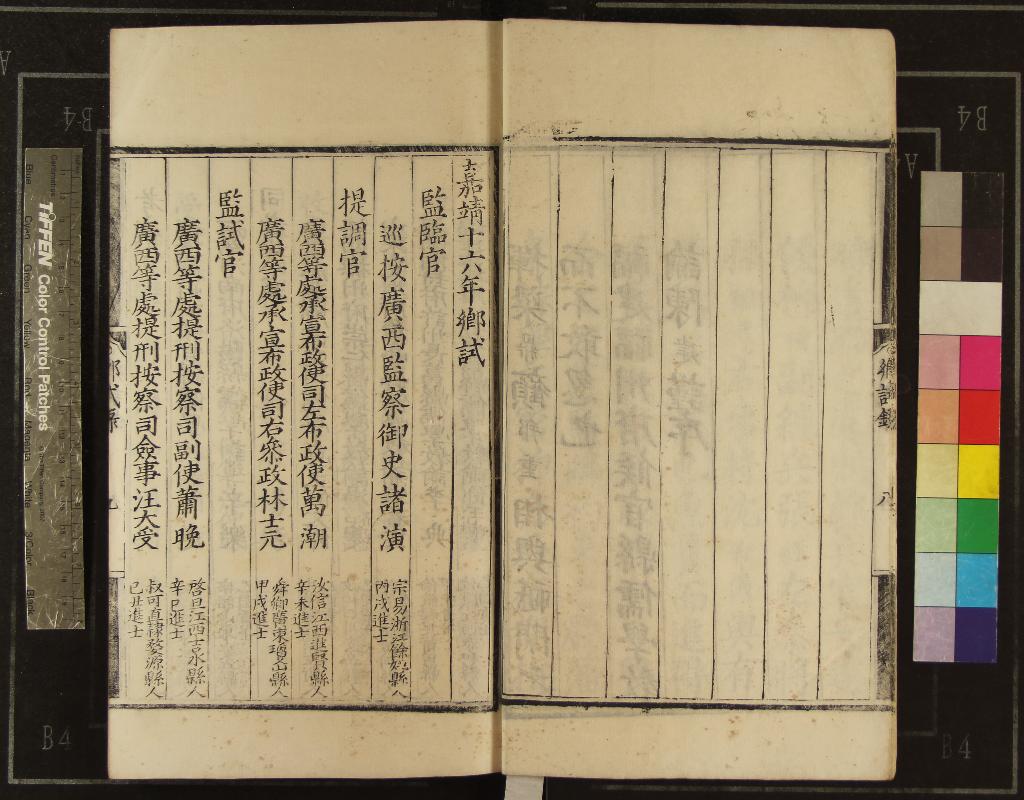 鄉試錄
八
嘉靖十六年鄉試
監臨官
巡按廣西監察御史諸演
宗易浙江餘姚縣人
丙戌進士
提調官
廣西等處承宣布政使司左布政使萬潮
汝信江西進賢縣人
辛未進士
廣西等處承宣布政使司右參政林士元
舜卿廣東瓊山縣人
甲戌進士
監試官
廣西等處提刑按察司副使蕭晚
啓旦江西吉水縣人
辛巳進士
廣西等處提刑按察司僉事汪大受
叔可直隸婺源縣人
己丑進士
鄉試錄
九
TIFFEN Color Control Patches
B4
B4
B4
B4